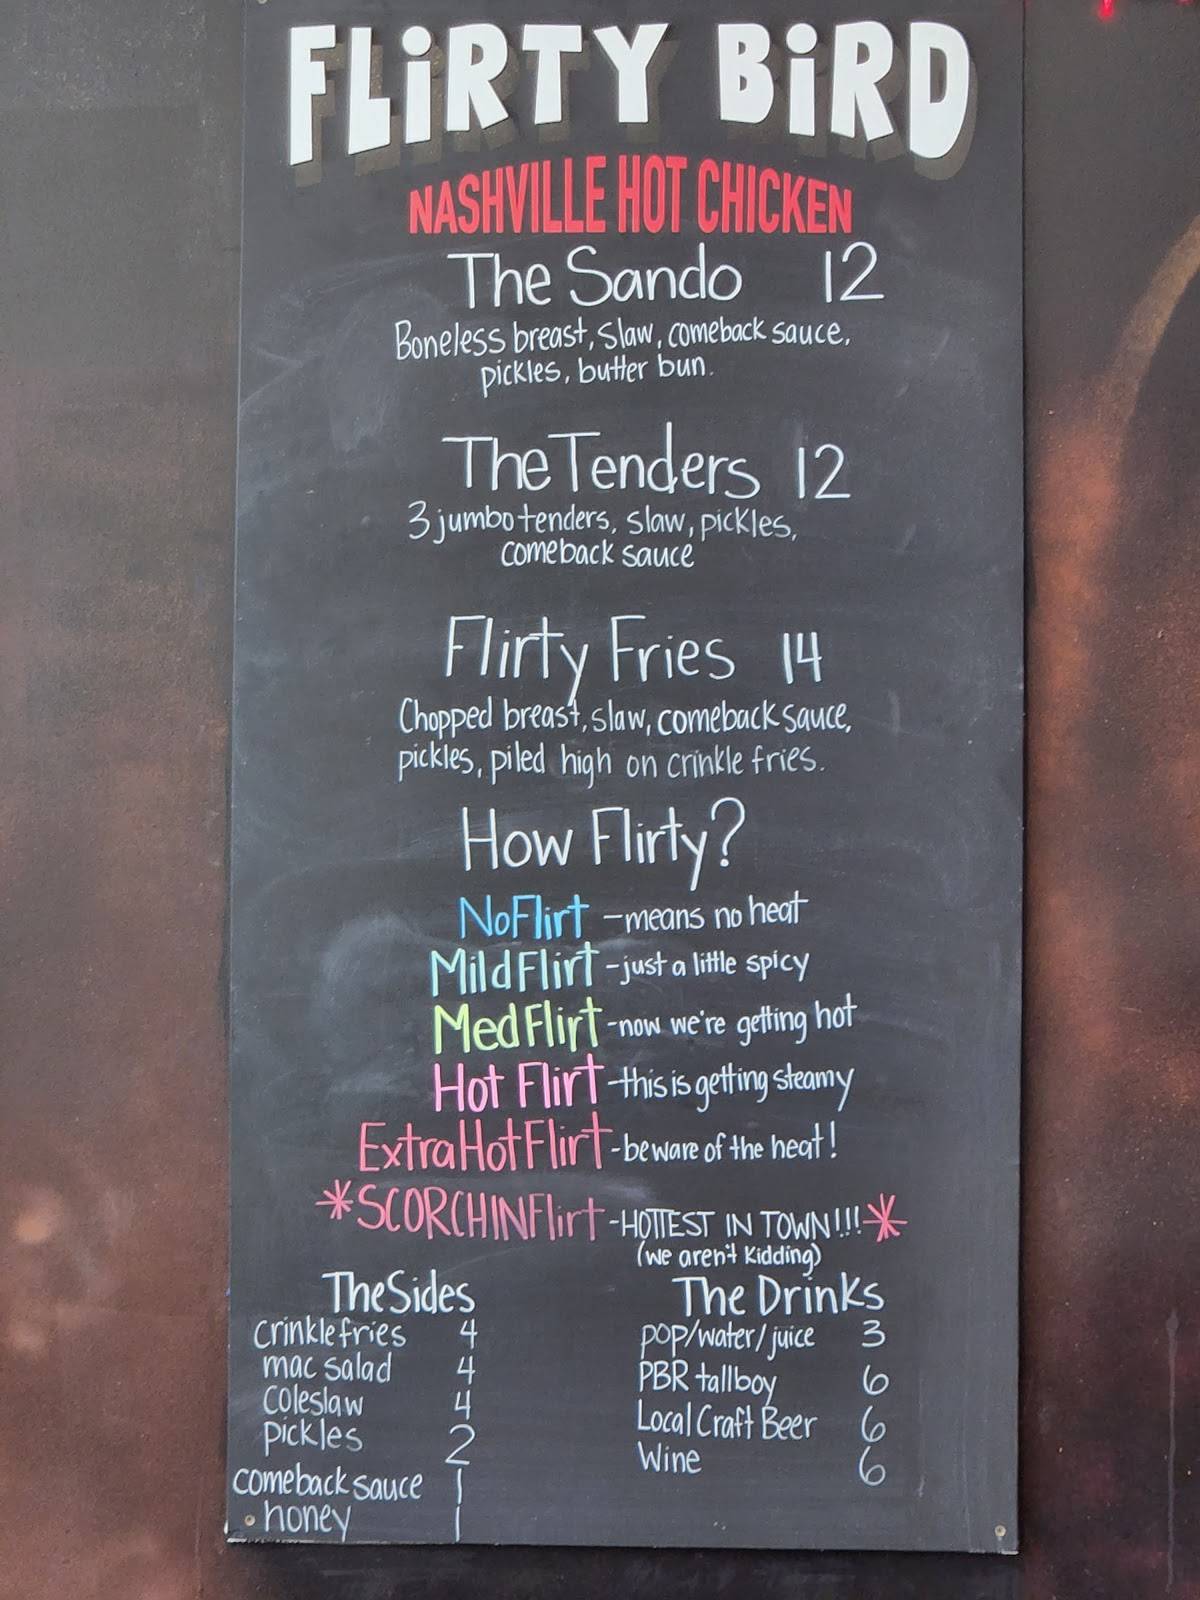 FLiRTY BiRD
NASHVILLE HOT CHICKEN
The Sando 12
Boneless breast, slaw, comeback sauce,
pickles, butter bun.
The Tenders 12
3 jumbo tenders, slaw, pickles,
comeback sauce
Flirty Fries 14
Chopped breast, slaw, comeback sauce,
pickles, piled high on crinkle fries.
How Flirty?
No Flirt - means no heat
Mild Flirt - just a little spicy
Med Flirt - now we're getting hot
Hot Flirt - this is getting steamy
Extra Hot Flirt - beware of the heat!
*SCORCHIN Flirt - HOTTEST IN TOWN!!!*
(we aren't kidding)
The Sides
crinkle fries 4
mac salad 4
coleslaw 4
pickles 2
comeback sauce 1
honey 1
The Drinks
pop/water/juice 3
PBR tallboy 6
Local Craft Beer 6
Wine 6